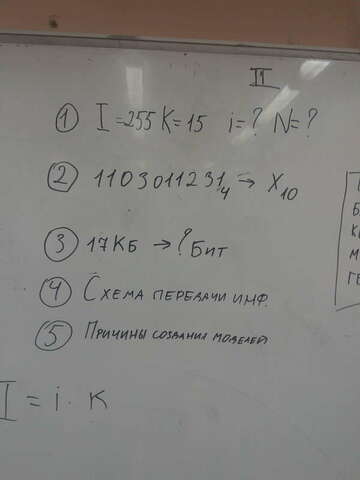 II
① I=255 K=15 i=? N=?
② 1103011231₄ → X₁₀
③ 17КБ → ? БИТ
④ СХЕМА ПЕРЕДАЧИ ИНФ.
⑤ ПРИЧИНЫ СОЗДАНИЯ МОДЕЛЕЙ
I = i · K